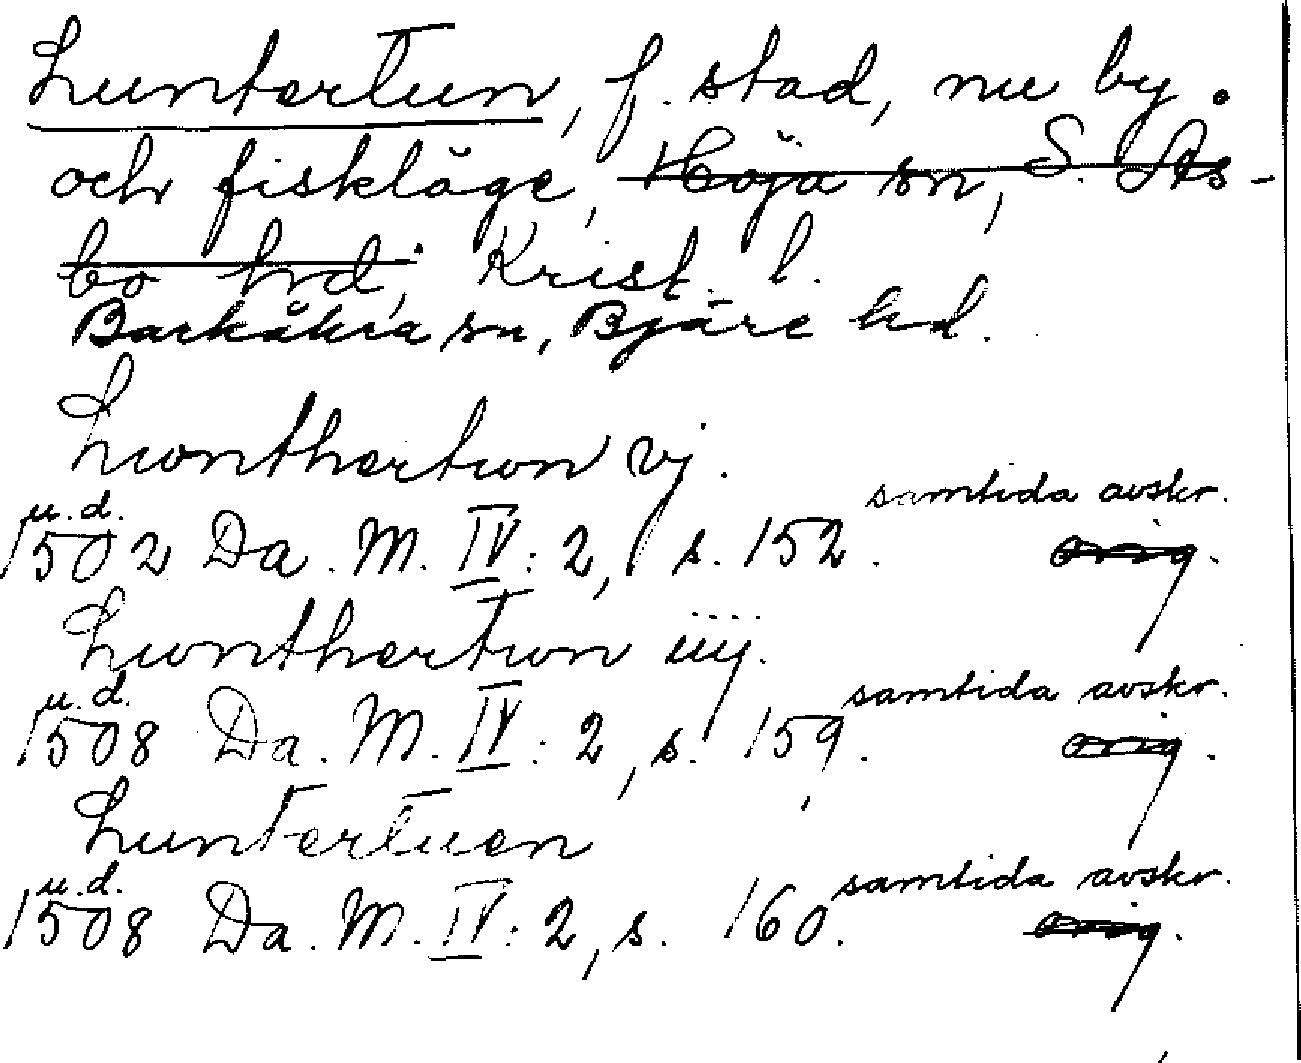 Luntertun, f. stad, nu by.
och fiskläge, Höja sn, S. Ås-
bo hrd, Krist. l.
Barkåkra sn, Bjäre hd.
Luonthertwn vj.
samtida avskr.
u.d.
1502 Da. M. IV: 2, s. 152. orig.
Lwnthertwn iiij.
samtida avskr.
u.d.
1508 Da. M. IV: 2, s. 159. orig.
Luntertuen
samtida avskr.
u.d.
1508 Da. M. IV: 2, s. 160. orig.